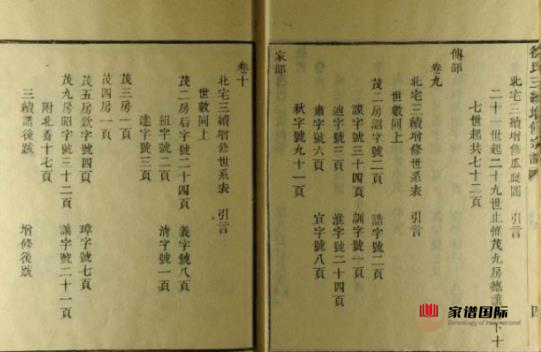 徐氏三續增修宗譜
北宅三續增修瓜瓞圖 引言
二十一世起二十九世止惟茂九房德讓 下十
七世起共七十二頁
傳部
卷九
北宅三續增修世系表 引言
世數同上
茂二房詔字號二頁 誥字號二頁
謨字號三十四頁 訓字號一頁
迪字號三頁 淮字號二十四頁
肅字號六頁 宣字號八頁
秋字號九十一頁
家部
卷十
北宅三續增修世系表 引言
世數同上
茂二房后字號二十四頁 義字號八頁
祖字號二頁 清字號一頁
達字號三頁
茂三房一頁
茂四房一頁
茂五房欽字號四頁 璋字號七頁
茂九房昭字號三十二頁 讓字號二十一頁
附北春十七頁
三續譜後跋 增修後跋
家谱国际
Genealogy of International